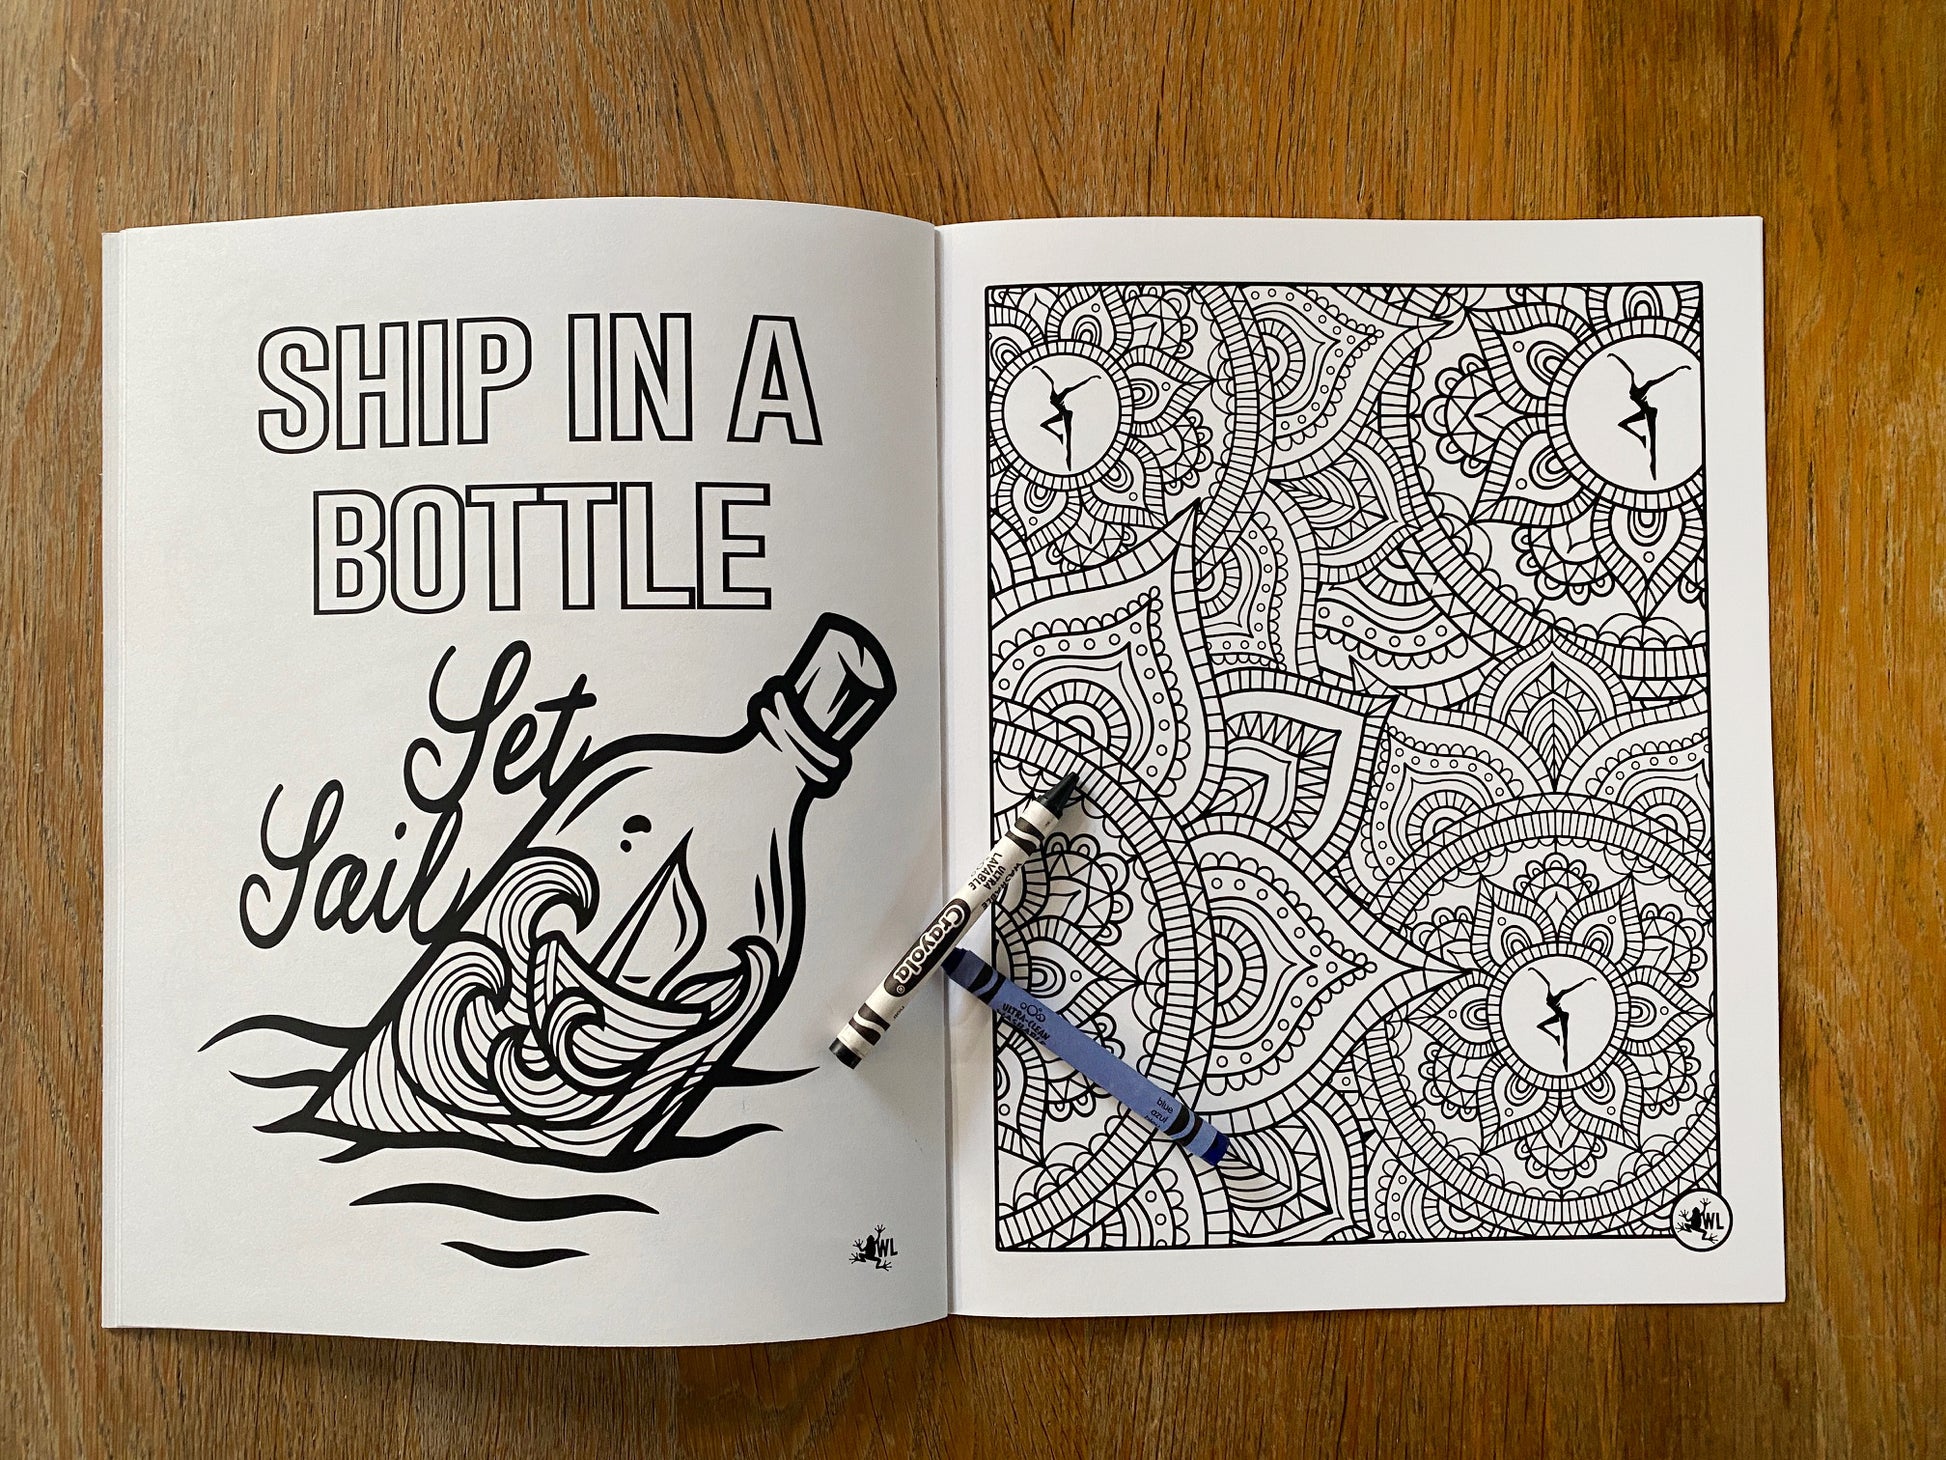 SHIP IN A
BOTTLE
Set
Sail
WL
Crayola
ULTRA
blue
azul
ULTRA-CLEAN
WASHABLE
WL